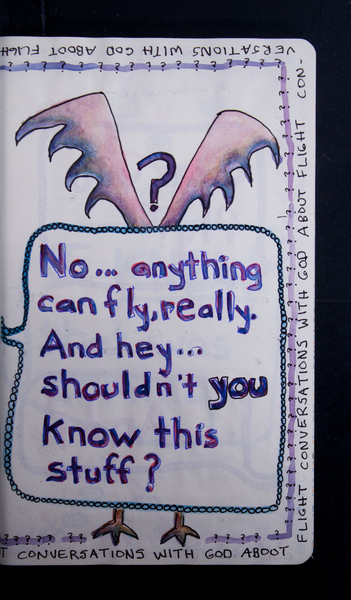 ?
No... anything
can fly, really.
And hey...
shouldn't you
know this
stuff?
T CONVERSATIONS WITH GOD ABOUT
FLIGHT CONVERSATIONS WITH GOD ABOUT FLIGHT CON-
VERSATIONS WITH GOD ABOUT FLIGH